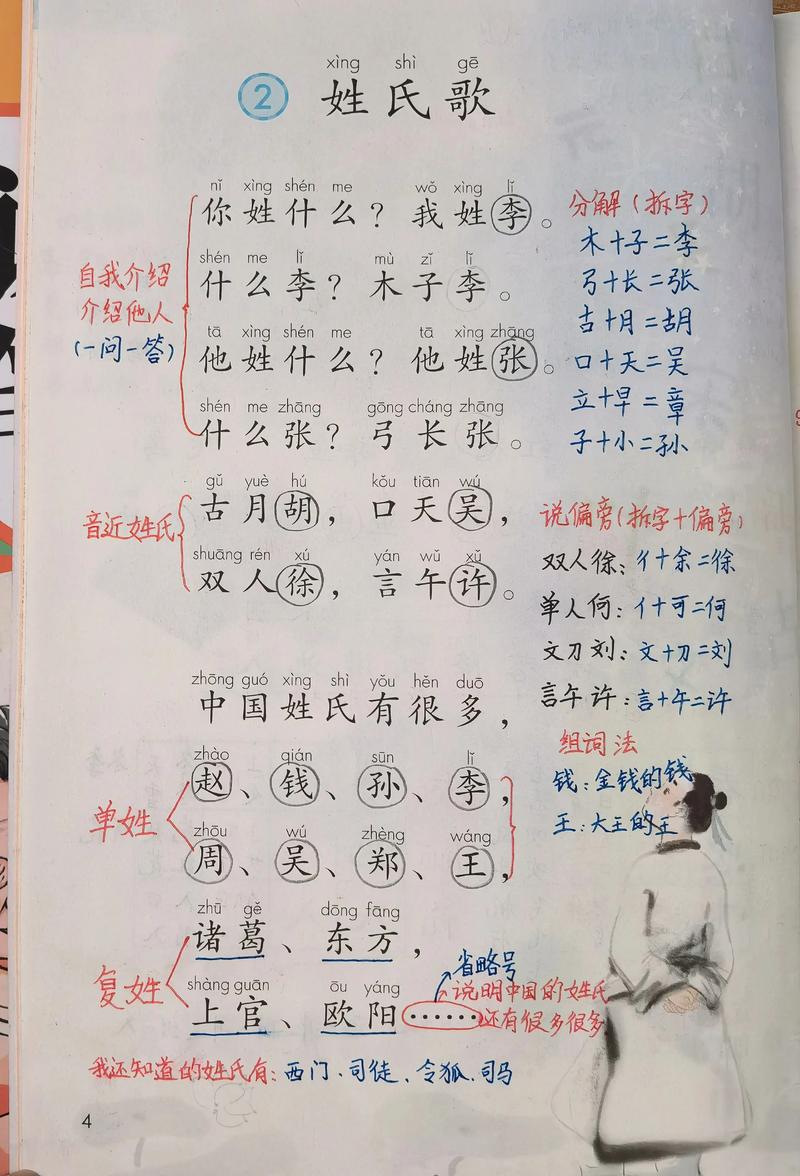 xìng shì gē
② 姓氏歌
nǐ xìng shén me wǒ xìng lǐ
你姓什么？我姓李。
shén me lǐ mù zǐ lǐ
什么李？木子李。
tā xìng shén me tā xìng zhāng
他姓什么？他姓张。
shén me zhāng gōng cháng zhāng
什么张？弓长张。
自我介绍
介绍他人
(一问一答)
分解(拆字)
木+子=李
弓+长=张
古+月=胡
口+天=吴
立+早=章
子+小=孙
gǔ yuè hú kǒu tiān wú
古月胡，口天吴，
shuāng rén xú yán wǔ xǔ
双人徐，言午许。
音近姓氏
说偏旁(拆字+偏旁)
双人徐：彳+余=徐
单人何：亻+可=何
文刀刘：文+刂=刘
言午许：言+午=许
zhōng guó xìng shì yǒu hěn duō
中国姓氏有很多，
zhào qián sūn lǐ
赵、钱、孙、李，
zhōu wú zhèng wáng
周、吴、郑、王，
单姓
组词法
钱：金钱的钱
王：大王的王
zhū gě dōng fāng
诸葛、东方，
shàng guān ōu yáng
上官、欧阳……
复姓
省略号
说明中国的姓氏
还有很多很多
我还知道的姓氏有：西门、司徒、令狐、司马
4